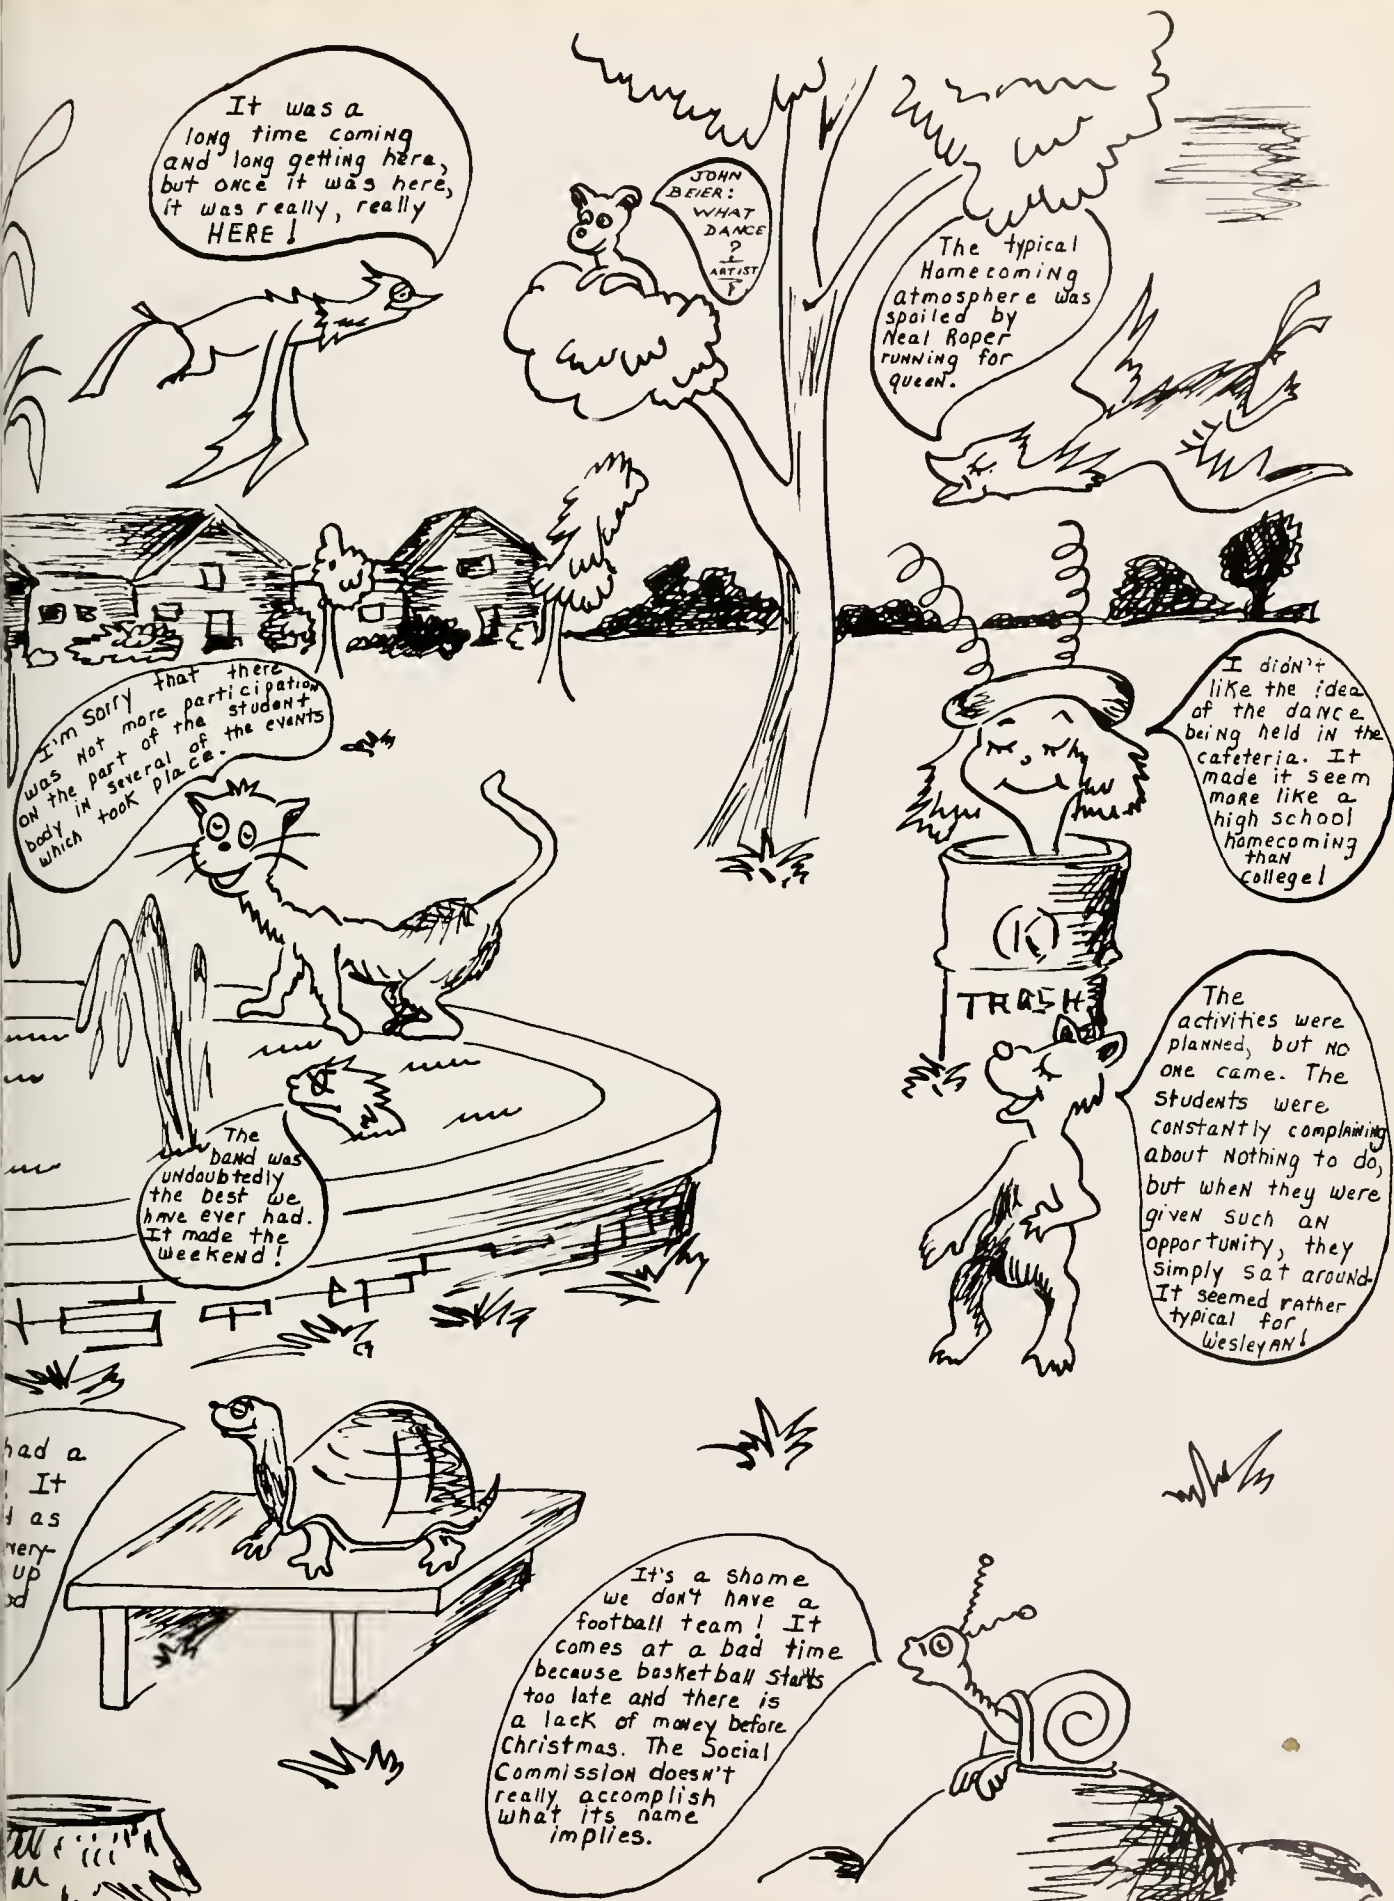 It was a
long time coming
and long getting here,
but once it was here,
it was really, really
HERE!
JOHN
BEIER:
WHAT
DANCE
?
ARTIST
The typical
Homecoming
atmosphere was
spoiled by
Neal Roper
running for
queen.
I'm sorry that there
was not more participation
on the part of the student
body in several of the events
which took place.
I didn't
like the idea
of the dance
being held in the
cafeteria. It
made it seem
more like a
high school
homecoming
than
college!
TRASH
The
activities were
planned, but no
one came. The
students were
constantly complaining
about nothing to do,
but when they were
given such an
opportunity, they
simply sat around.
It seemed rather
typical for
Wesleyan!
The
band was
undoubtedly
the best we
have ever had.
It made the
weekend!
had a
! It
as
very-
up
od
It's a shame
we don't have a
football team! It
comes at a bad time
because basketball starts
too late and there is
a lack of money before
Christmas. The Social
Commission doesn't
really accomplish
what its name
implies.